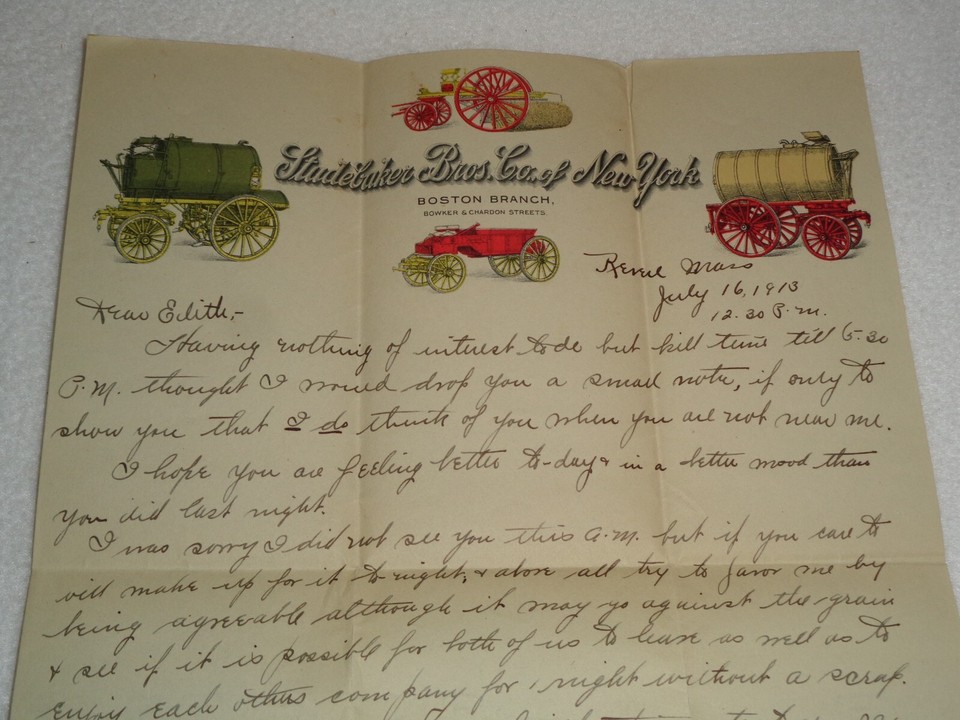 Studebaker Bros. Co. of New York
BOSTON BRANCH,
BOWKER & CHARDON STREETS.
Revere Mass
July 16, 1913
12.30 P.m.
Dear Edith,-
Having nothing of interest to do but kill time till 5-30
P.M. thought I would drop you a small note, if only to
show you that I do think of you when you are not near me.
I hope you are feeling better to-day & in a better mood than
you did last night.
I was sorry I did not see you this A.M. but if you care to
will make up for it to-night, & above all try to favor me by
being agreeable although it may go against the grain
& see if it is possible for both of us to leave as well as to
enjoy each others company for 1 night without a scrap.